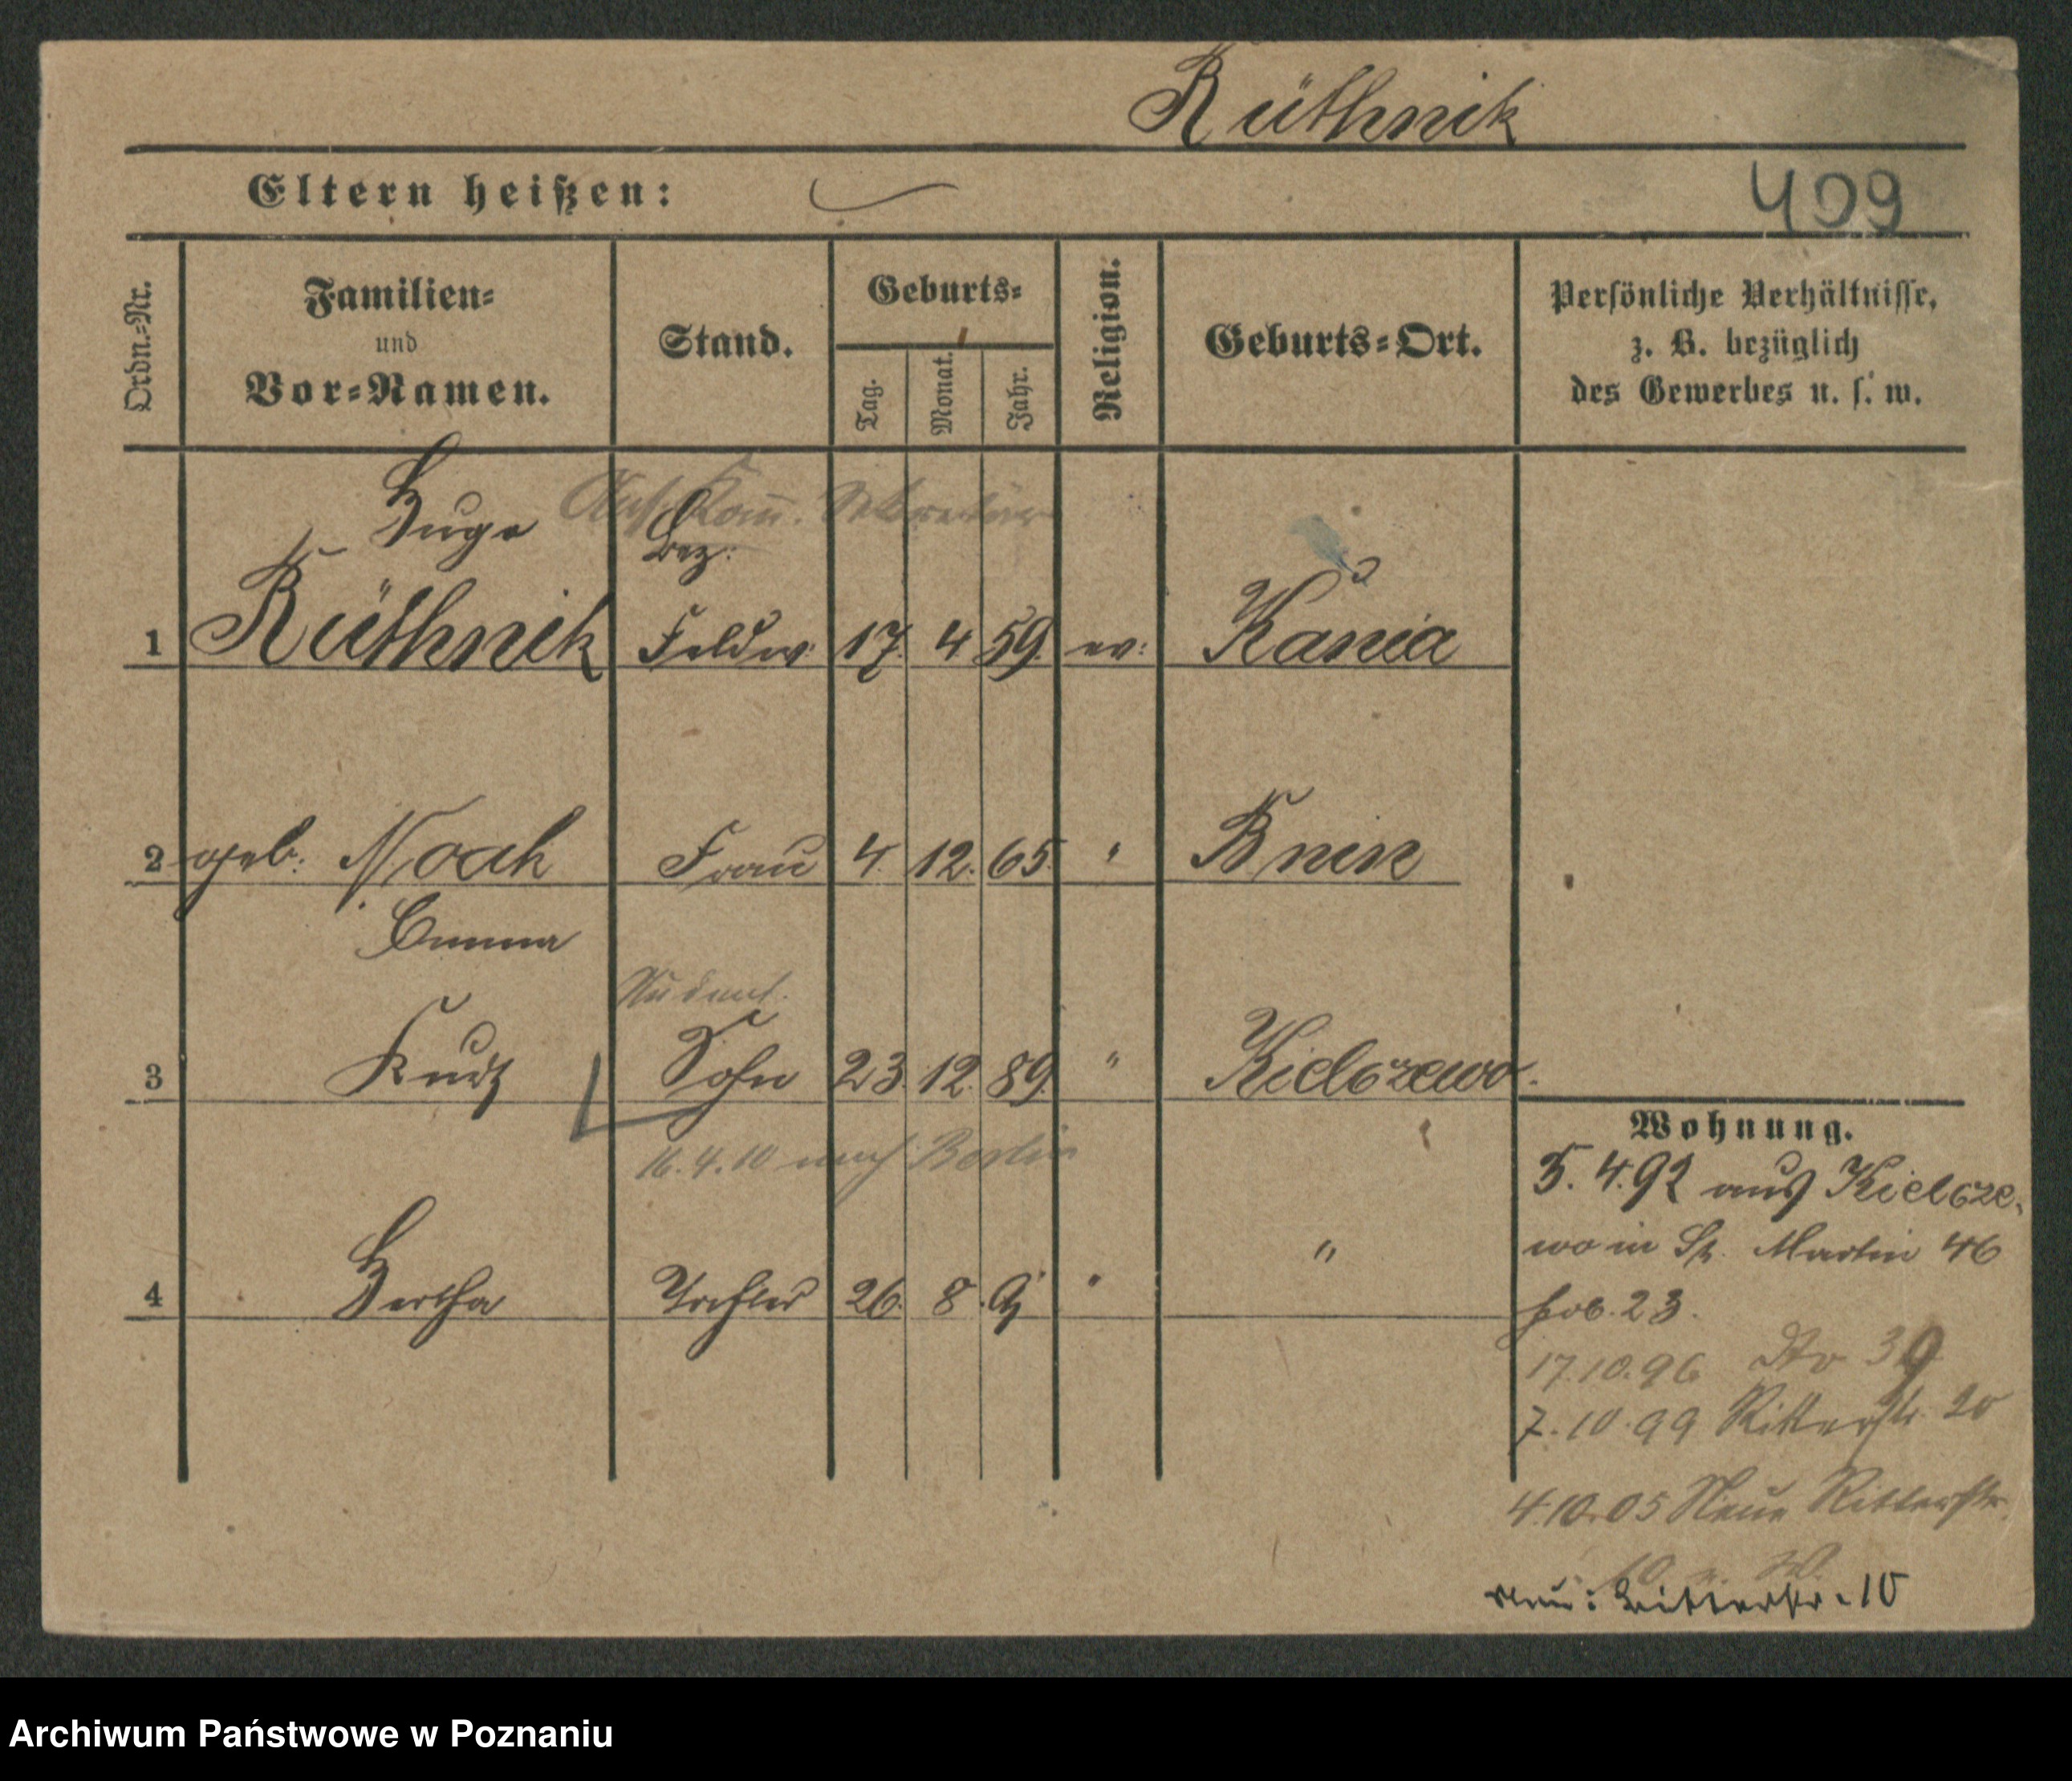 Rüthnik
Eltern heißen:
409
Ordn.=Nr.
Familien=
und
Vor=Namen.
Stand.
Geburts=
Tag.
Monat.
Jahr.
Religion.
Geburts=Ort.
Persönliche Verhältnisse,
z. B. bezüglich
des Gewerbes u. s. w.
Hugo
Sekretär
Bez:
1 Rüthnik Feldw: 17. 4. 59. ev: Kania
2 geb. Noak Frau 4. 12. 65. " Bnin
Emma
Student.
3 Kurt Sohn 23. 12. 89. " Kielczewo.
16.4.10 nach Berlin
4 Hertha Tochter 26. 8. 91 " "
Wohnung.
5.4.92 aus Kielcze-
wo in St. Martin 46
17.10.96 dto 39
7.10.99 Ritterstr. 20
4.10.05 Neue Ritterstr.
10
Neue Ritterstr. 10
Archiwum Państwowe w Poznaniu